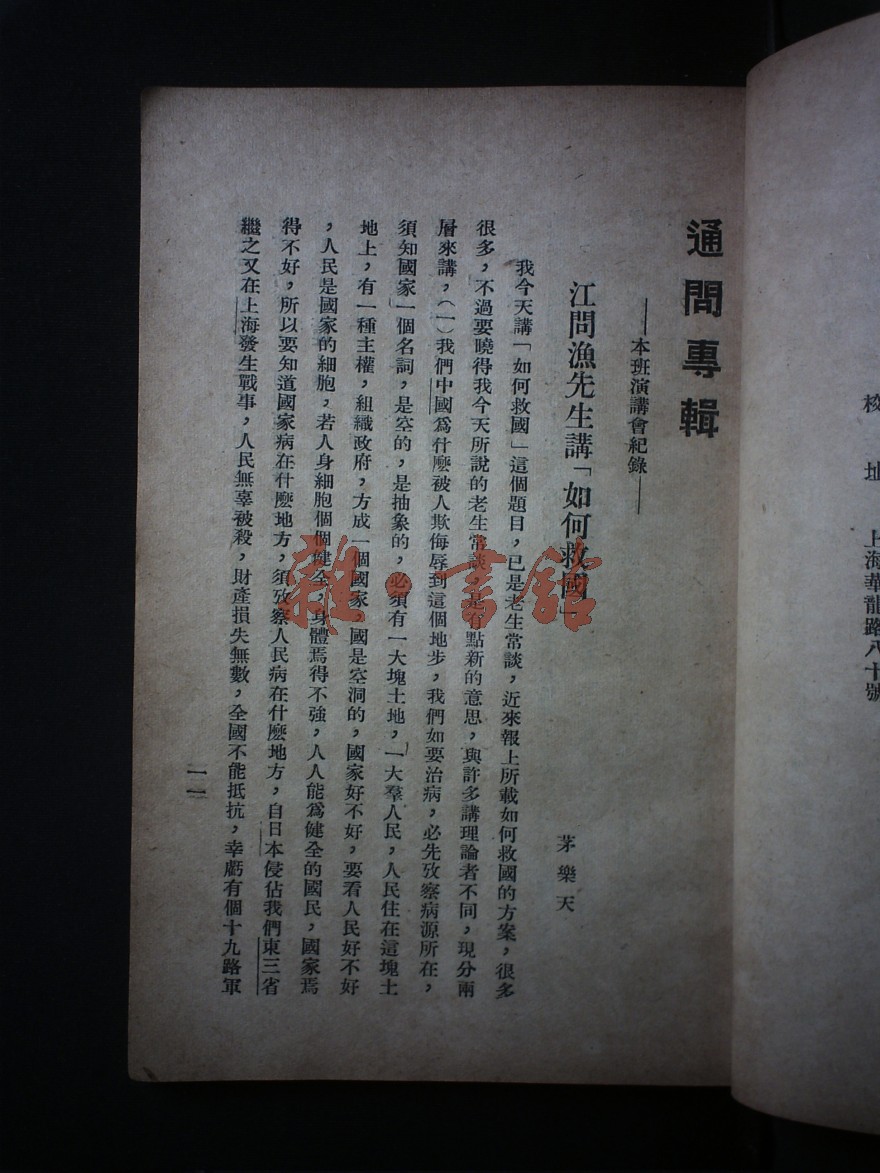 校址 上海華龍路八十號
通問專輯
——本班演講會紀錄——
江問漁先生講「如何救國」
茅樂天
我今天講「如何救國」這個題目，已是老生常談，近來報上所載如何救國的方案，很多
很多，不過要曉得我今天所說的老生常談，是有點新的意思，與許多講理論者不同，現分兩
層來講，（一）我們中國爲什麽被人欺侮辱到這個地步，我們如要治病，必先攷察病源所在，
須知國家」一個名詞，是空的，是抽象的，必須有一大塊土地，一大羣人民，人民住在這塊土
地上，有一種主權，組織政府，方成一個國家，國是空洞的，國家好不好，要看人民好不好
，人民是國家的細胞，若人身細胞個個健全，身體焉得不強，人人能爲健全的國民，國家焉
得不好，所以要知道國家病在什麽地方，須攷察人民病在什麽地方，自日本侵佔我們東三省
繼之又在上海發生戰事，人民無辜被殺，財產損失無數，全國不能抵抗，幸虧有個十九路軍
一一
雜·書館